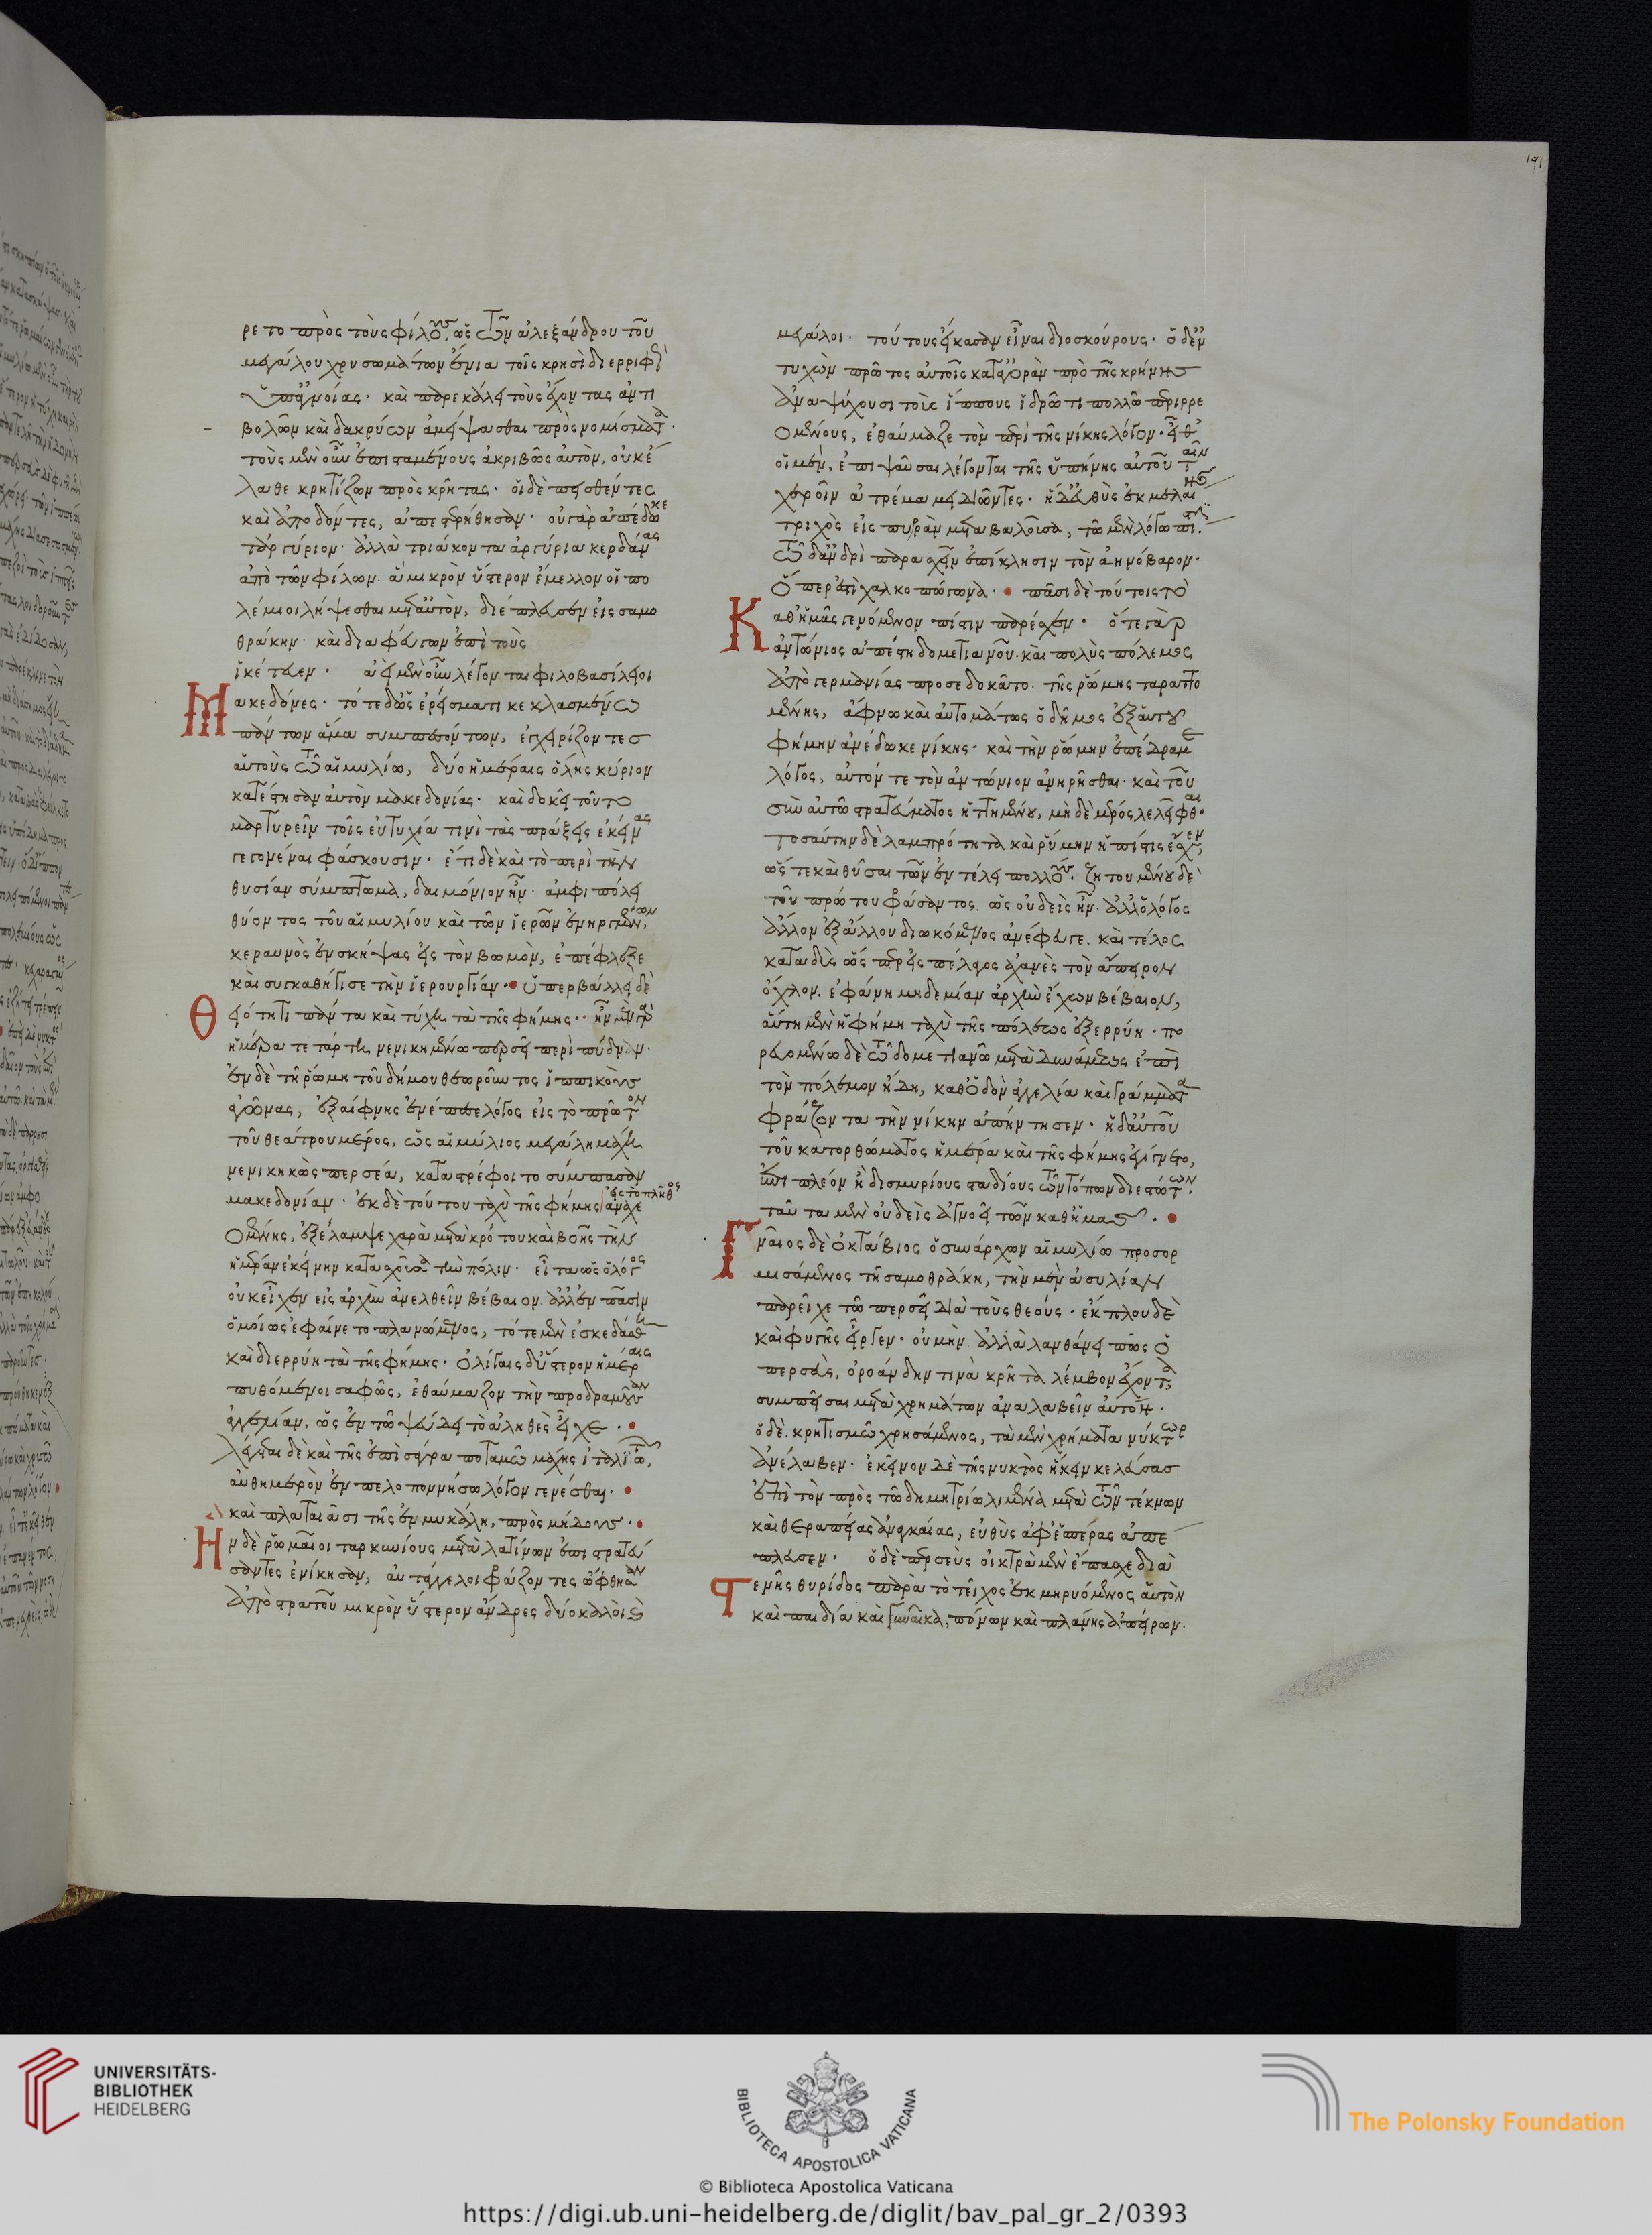 ρετο πρὸς τοὺς φίλους, ὡς τῶν ἀλεξάνδρου τοῦ
μεγάλου χρυσωμάτων ἔνια τοῖς κρησὶ διερριφὼς
ὑπ' ἀγνοίας· καὶ παρεκάλει τοὺς ἔχοντας ἀντι
βολῶν καὶ δακρύων ἀμείψασθαι πρὸς νομίσματα·
τοὺς μὲν οὖν ἐπισταμένους ἀκριβῶς αὐτὸν, οὐκ ἔ
λαθε κρητίζων πρὸς κρῆτας· οἱ δὲ πεισθέντες
καὶ ἀποδόντες, ἀπεστερήθησαν· οὐ γὰρ ἀπέδωκε
τἀργύριον· ἀλλὰ τριάκοντα ἀργύρια κερδάνας
ἀπὸ τῶν φίλων. ἃ μικρὸν ὕστερον ἔμελλον οἱ πο
λέμιοι λήψεσθαι μετ' αὐτὸν, διέπλευσεν εἰς σαμο
θράκην· καὶ διαφεύγων ἐπὶ τοὺς
ἱκέτευεν· ἀεὶ μὲν οὖν λέγονται φιλοβασίλειοι
Μακεδόνες· τότε δ' ὡς ἐρείσματι κεκλασμένω
πάντων ἅμα συμπεσόντων, ἐγχειρίζοντες
αὑτοὺς τῶ αἰμυλίω, δύο ἡμέραις ὅλης κύριον
κατέστησαν αὐτὸν μακεδονίας· καὶ δοκεῖ τοῦτο
μαρτυρεῖν τοῖς εὐτυχία τινὶ τὰς πράξεις ἐκείνας
γεγονέναι φάσκουσιν· ἔτι δὲ καὶ τὸ περὶ τὴν
θυσίαν σύμπτωμα, δαιμόνιον ἦν· ἀμφιπόλει
θύοντος τοῦ αἰμυλίου καὶ τῶν ἱερῶν ἐνηργμένων,
κεραυνὸς ἐνσκήψας εἰς τὸν βωμὸν, ἐπέφλεξε
καὶ συγκαθήγισε τὴν ἱερουργίαν· ὑπερβάλλει δὲ
Θειότητι πάντα καὶ τύχη τὰ τῆς φήμης· ἦν μὲν γὰρ
ἡμέρα τετάρτη νενικημένω περσεῖ περὶ πύδναν·
ἐν δὲ τῆ ῥώμη τοῦ δήμου θεωροῦντος ἱππικοὺς
ἀγῶνας, ἐξαίφνης ἐνέπεσε λόγος εἰς τὸ πρῶτον
τοῦ θεάτρου μέρος, ὡς αἰμύλιος μεγάλη μάχη
νενικηκὼς περσέα, καταστρέφοιτο σύμπασαν
μακεδονίαν· ἐκ δὲ τούτου ταχὺ τῆς φήμης εἰς τὸ πλῆθος ἀναχε
ομένης, ἐξέλαμψε χαρὰ μετὰ κρότου καὶ βοῆς τὴν
ἡμέραν ἐκείνην κατασχοῦσα τὴν πόλιν· εἶτα ὡς ὁ λόγος
οὐκ εἶχεν εἰς ἀρχὴν ἀνελθεῖν βέβαιον. ἀλλ' ἐν πᾶσιν
ὁμοίως ἐφαίνετο πλανώμενος, τότε μὲν ἐσκεδάσθη
καὶ διερρύη τὰ τῆς φήμης· ὀλίγαις δ' ὕστερον ἡμέραις
πυθόμενοι σαφῶς, ἐθαύμαζον τὴν προδραμοῦσαν
ἀγγελίαν, ὡς ἐν τῶ ψεύδει τὸ ἀληθὲς εἶχε·
λέγεται δὲ καὶ τῆς ἐπὶ σάγρα ποταμῶ μάχης ἰταλιωτῶν,
αὐθημερὸν ἐν πελοποννήσω λόγον γενέσθαι·
καὶ πλαταιᾶσι τῆς ἐν μυκάλη, πρὸς μήδους·
Ην δὲ ῥωμαῖοι ταρκυνίους μετὰ λατίνων ἐπιστρατεύ
σαντες ἐνίκησαν, αὐτάγγελοι φράζοντες ὤφθησαν
ἀπὸ στρατοῦ μικρὸν ὕστερον ἄνδρες δύο καλοὶ καὶ
μεγάλοι· τούτους εἴκασαν εἶναι διοσκούρους· ὁ δ' ἐν
τυχὼν πρῶτος αὐτοῖς κατ' ἀγορὰν πρὸ τῆς κρήνης
ἀναψύχουσι τοὺς ἵππους ἱδρῶτι πολλῶ περιρρε
ομένους, ἐθαύμαζε τὸν περὶ τῆς νίκης λόγον· εἶθ'
οἱ μὲν, ἐπιψαῦσαι λέγονται τῆς ὑπήνης αὐτοῦ ταῖν
χεροῖν ἀτρέμα μειδιῶντες· ἡ δ' εὐθὺς ἐκ μελαίνης
τριχὸς εἰς πυρὰν μεταβαλοῦσα, τῶ μὲν λόγω πίστιν.
τῶ δ' ἀνδρὶ παρασχεῖν ἐπίκλησιν τὸν ἀηνόβαρβον·
ὅπερ ἐστὶ χαλκοπώγωνα· πᾶσι δὲ τούτοις τὸ
Καθ' ἡμᾶς γενόμενον πίστιν παρέσχεν· ὅτε γὰρ
ἀντώνιος ἀπέστη δομετιανοῦ· καὶ πολὺς πόλεμος
ἀπὸ γερμανίας προσεδοκᾶτο· τῆς ῥώμης ταραττο
μένης, ἄφνω καὶ αὐτομάτως ὁ δῆμος ἐξ αὑτοῦ
φήμην ἀνέδωκε νίκης· καὶ τὴν ῥώμην ἐπέδραμε
λόγος, αὐτόν τε τὸν ἀντώνιον ἀνηρῆσθαι· καὶ τοῦ
σὺν αὐτῶ στρατεύματος ἡττημένου, μηδὲ μέρος λελεῖφθαι·
τοσαύτην δὲ λαμπρότητα καὶ ῥύμην ἡ πίστις ἔσχεν,
ὥστε καὶ θῦσαι τῶν ἐν τέλει πολλούς· ζητουμένου δὲ
τοῦ πρώτου φράσαντος· ὡς οὐδεὶς ἦν· ἀλλ' ὁ λόγος
ἄλλον ἐξ ἄλλου διωκόμενος ἀνέφυγε· καὶ τέλος
καταδὺς ὡς περ εἰς πέλαγος ἀχανὲς τὸν ἄπειρον
ὄχλον. ἐφάνη μηδεμίαν ἀρχὴν ἔχων βέβαιον,
αὕτη μὲν ἡ φήμη ταχὺ τῆς πόλεως ἐξερρύη· πο
ρευομένω δὲ τῶ δομετιανῶ μετὰ δυνάμεως ἐπὶ
τὸν πόλεμον ἤδη, καθ' ὁδὸν ἀγγελία καὶ γράμματα
φράζοντα τὴν νίκην ἀπήντησεν· ἡ δ' αὐτοῦ
τοῦ κατορθώματος ἡμέρα καὶ τῆς φήμης ἐγίγνετο,
ἐπὶ πλέον ἢ δισμυρίους σταδίους τῶν τόπων διεστώτων·
ταῦτα μὲν οὐδεὶς ἀγνοεῖ τῶν καθ' ἡμᾶς·
Γναῖος δὲ ὀκταύϊος ὁ συνάρχων αἰμυλίω προσορ
μισάμενος τῆ σαμοθράκη, τὴν μὲν ἀσυλίαν
παρεῖχε τῶ περσεῖ διὰ τοὺς θεούς· ἔκπλου δὲ
καὶ φυγῆς εἶργεν· οὐ μὴν. ἀλλὰ λανθάνει πῶς ὁ
περσεὺς, ὀροάνδην τινὰ κρῆτα λέμβον ἔχοντα,
συμπεῖσαι μετὰ χρημάτων ἀναλαβεῖν αὐτόν·
ὁ δὲ. κρητισμῶ χρησάμενος, τὰ μὲν χρήματα νύκτωρ
ἀνέλαβεν· ἐκεῖνον δὲ τῆς νυκτὸς ἥκειν κελεύσας
ἐπὶ τὸν πρὸς τῶ δημητρίω λιμένα μετὰ τῶν τέκνων
καὶ θεραπείας ἀναγκαίας, εὐθὺς ἀφ' ἑσπέρας ἀπέ
πλευσεν· ὁ δὲ περσεὺς οἰκτρὰ μὲν ἔπασχε διὰ
Στενῆς θυρίδος παρὰ τὸ τεῖχος ἐκμηρυόμενος αὑτὸν
καὶ παιδία καὶ γυναῖκα, πόνων καὶ πλάνης ἀπείρων·
191
UNIVERSITÄTS-
BIBLIOTHEK
HEIDELBERG
BIBLIOTECA APOSTOLICA VATICANA
© Biblioteca Apostolica Vaticana
The Polonsky Foundation
https://digi.ub.uni-heidelberg.de/diglit/bav_pal_gr_2/0393